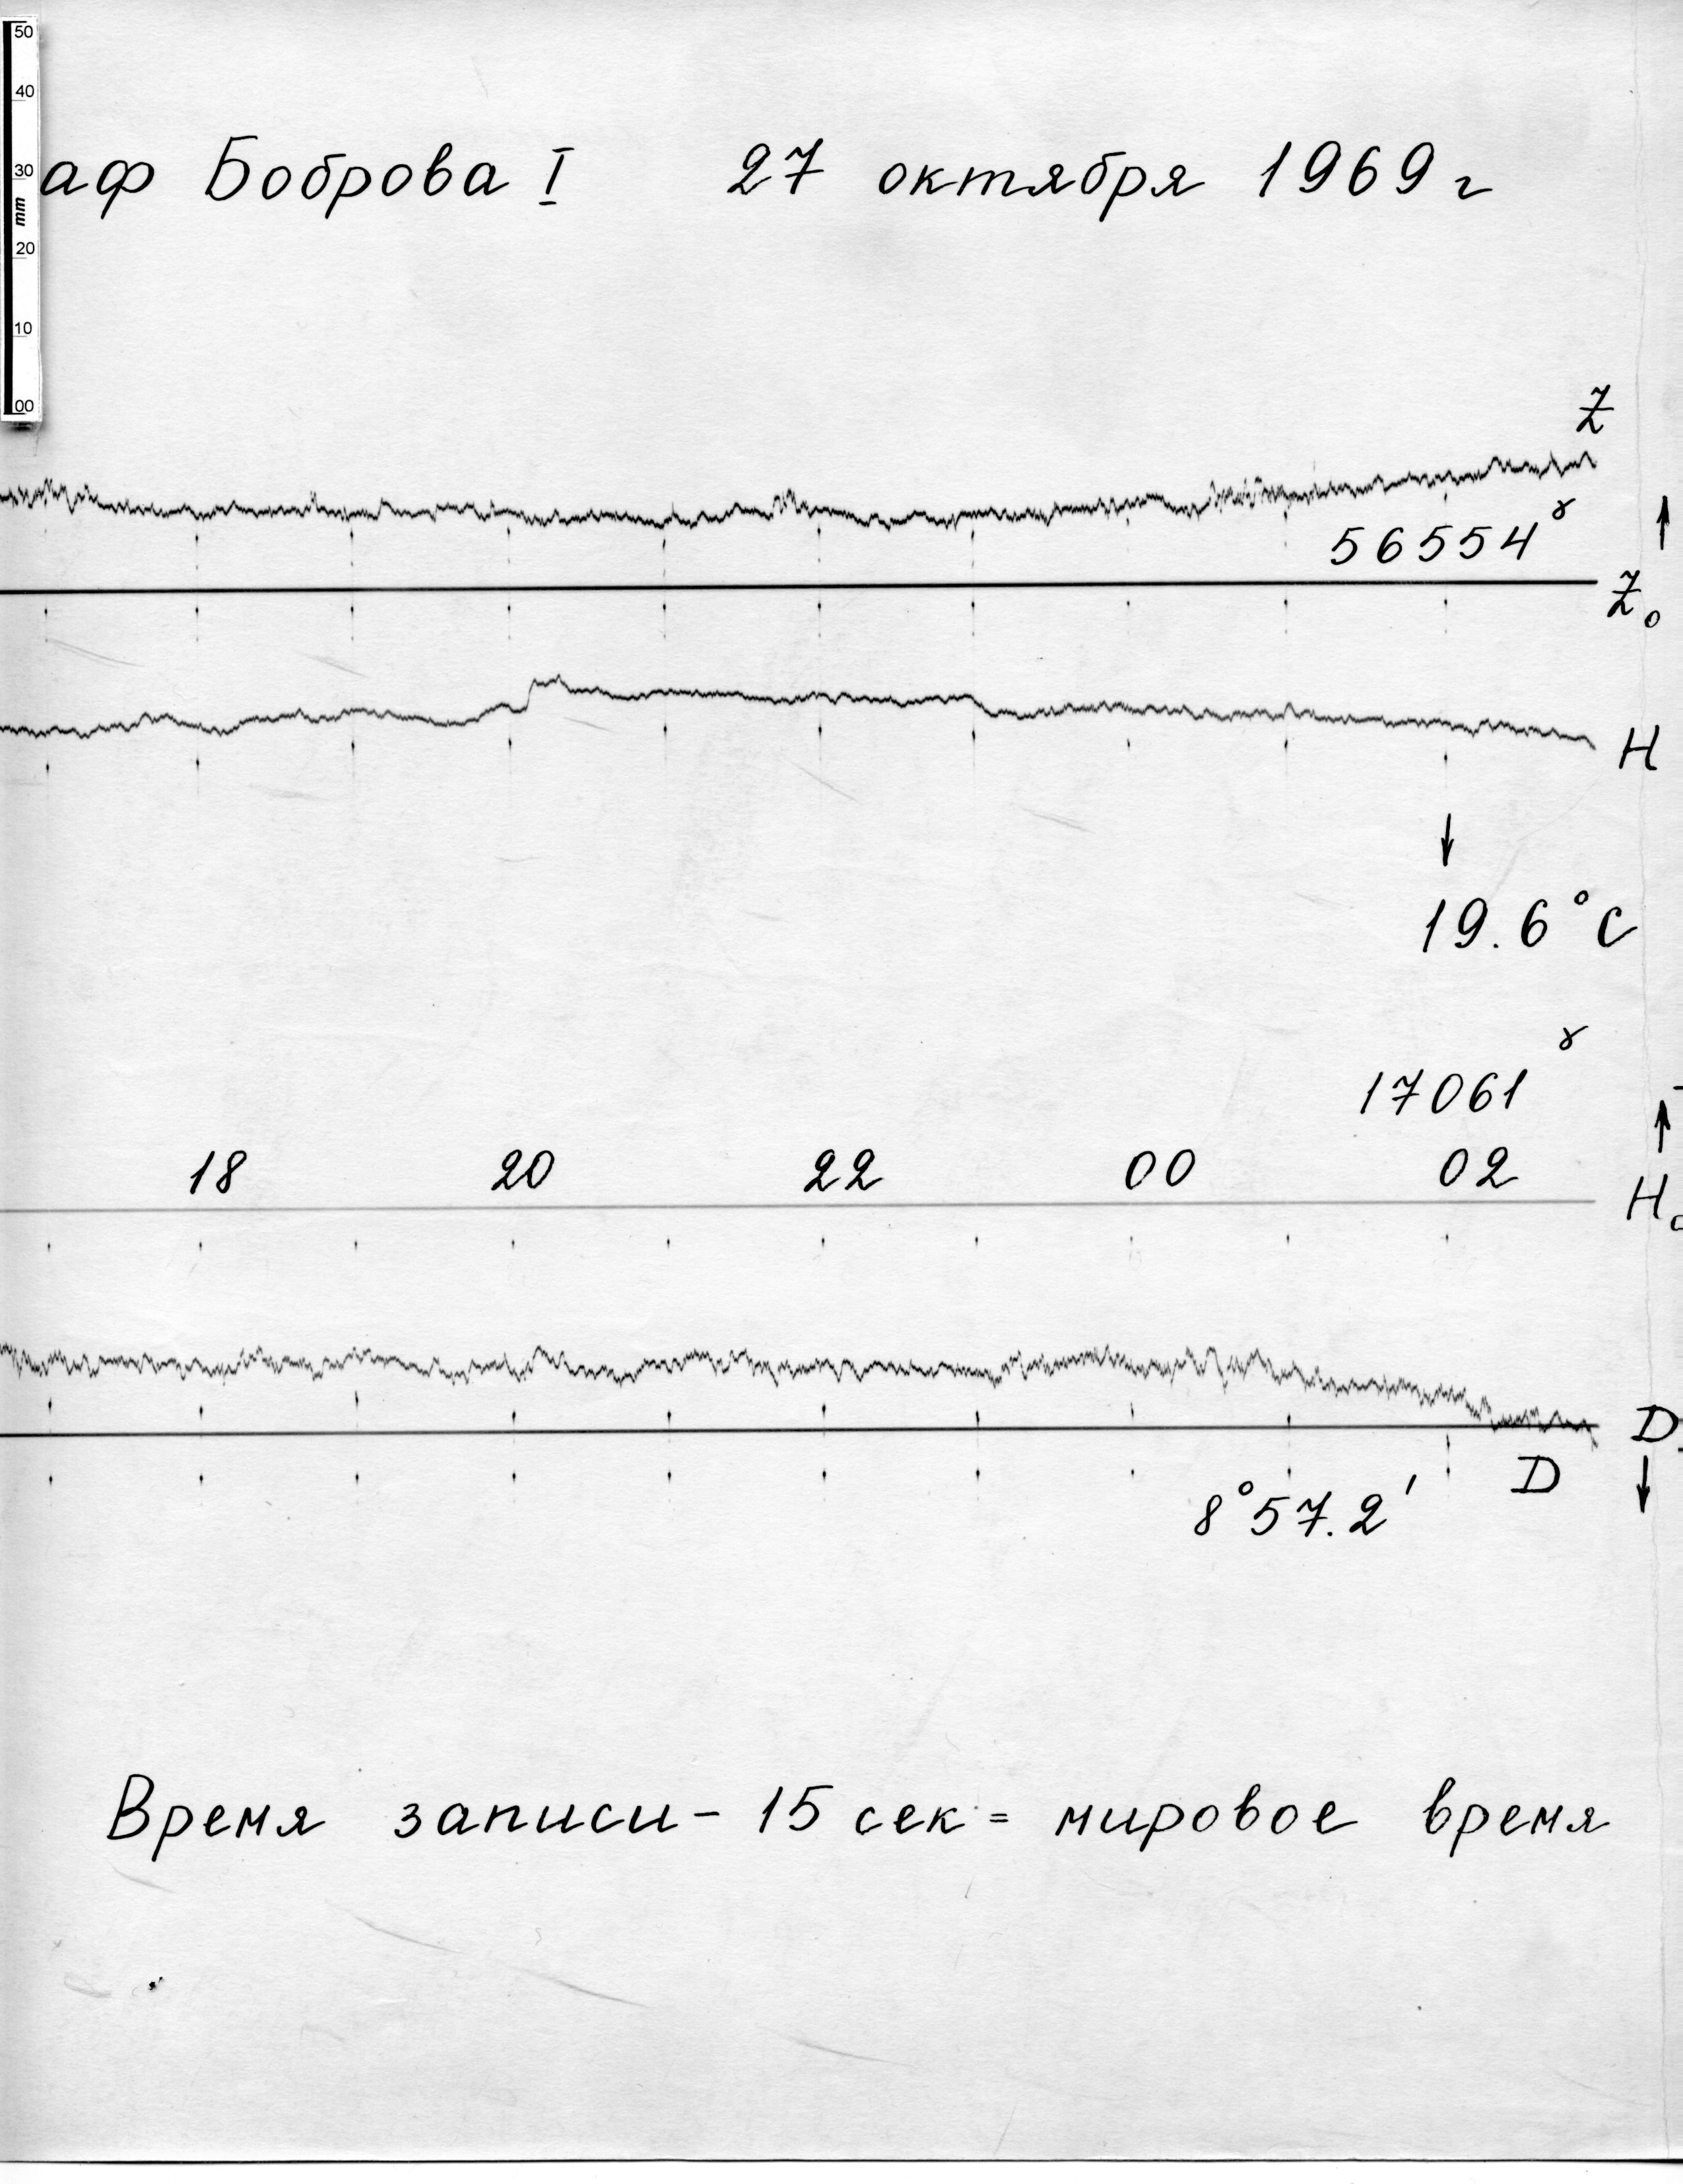 50
40
30
mm
20
10
00
аф Боброва I 27 октября 1969 г
Z
56554 γ
Z₀
H
19.6°C
17061 γ
18 20 22 00 02
H₀
D
D
8°57.2'
Время записи - 15 сек = мировое время